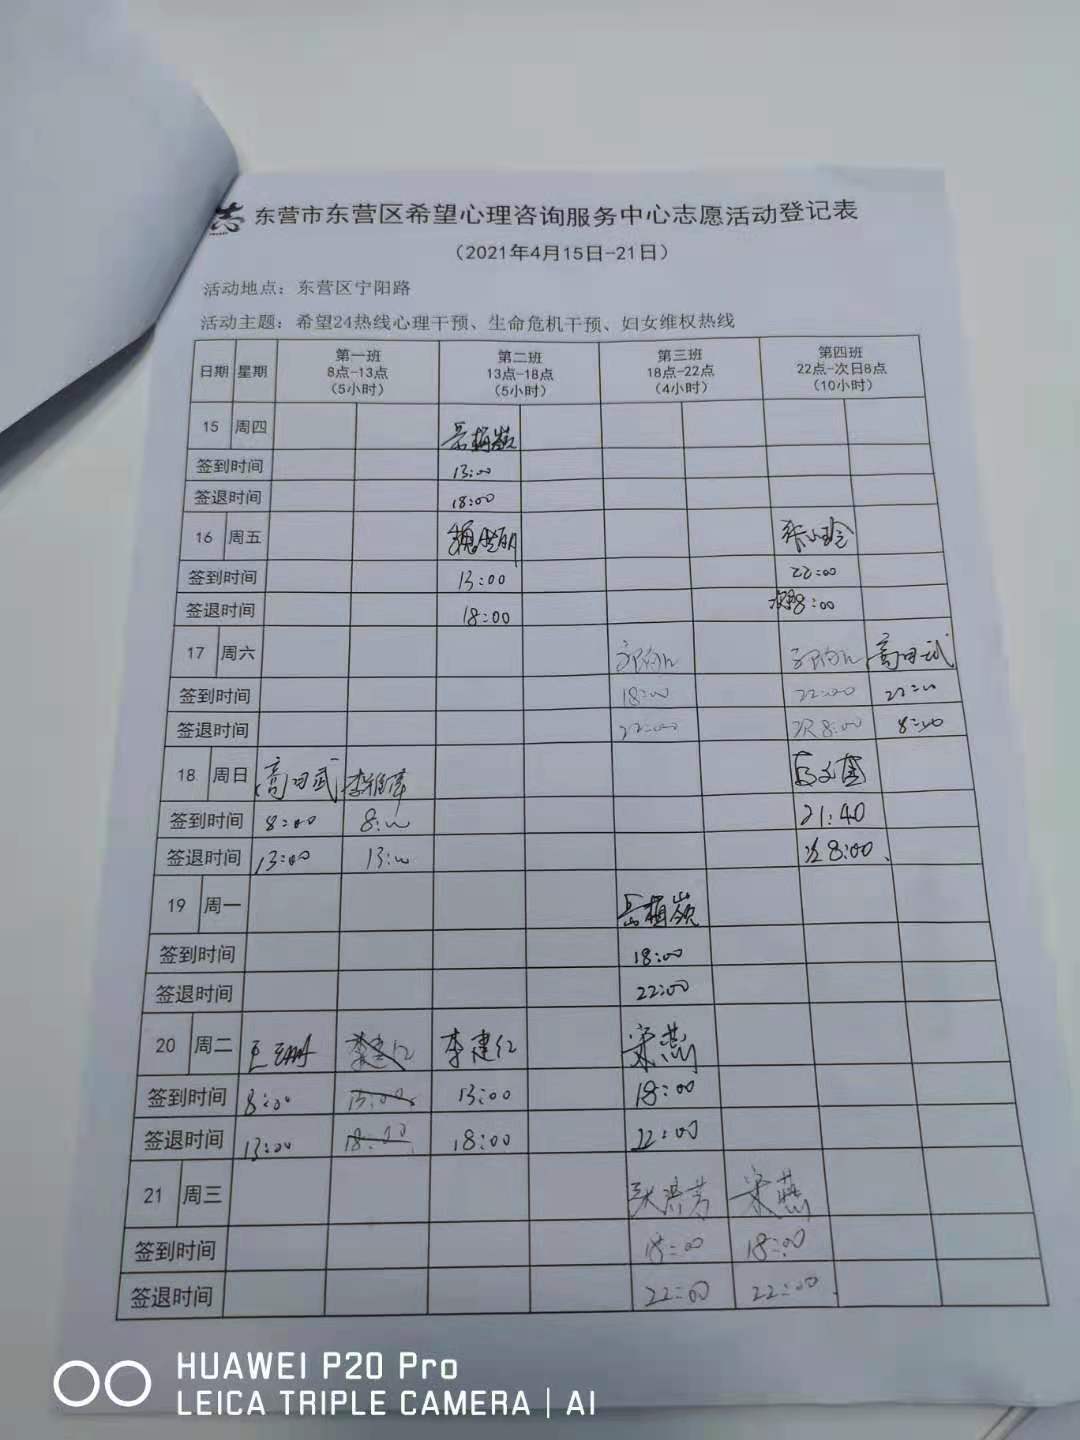 东营市东营区希望心理咨询服务中心志愿活动登记表
（2021年4月15日-21日）
活动地点：东营区宁阳路
活动主题：希望24热线心理干预、生命危机干预、妇女维权热线
日期 星期 第一班 8点-13点 （5小时） 第二班 13点-18点 （5小时） 第三班 18点-22点 （4小时） 第四班 22点-次日8点 （10小时）
15 周四
签到时间 13:00
签退时间 18:00
16 周五
签到时间 13:00 22:00
签退时间 18:00 8:00
17 周六
签到时间 18:00 22:00 22:00
签退时间 22:00 次8:00 8:00
18 周日
签到时间 8:00 8:00 21:40
签退时间 13:00 13:00 次8:00
19 周一
签到时间 18:00
签退时间 22:00
20 周二 李建红 李建红 宋燕
签到时间 8:00 13:00 13:00 18:00
签退时间 13:00 18:00 18:00 22:00
21 周三 张洪芳 宋燕
签到时间 18:00 18:00
签退时间 22:00 22:00
HUAWEI P20 Pro
LEICA TRIPLE CAMERA | AI